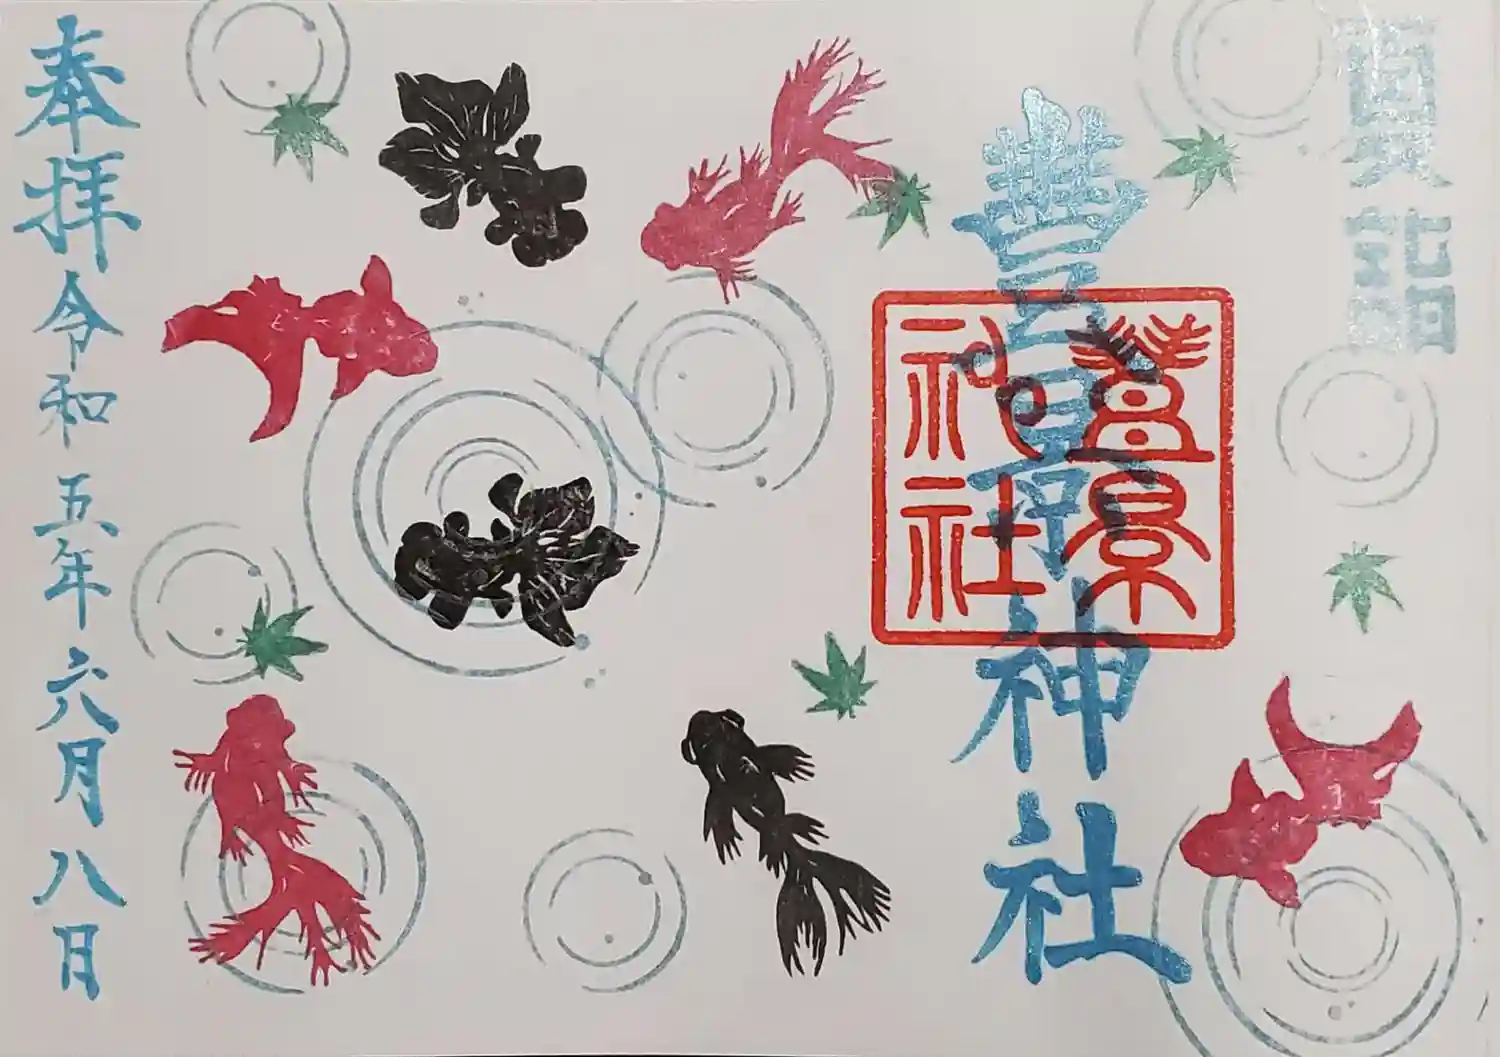 夏詣
豐景神社
豐景
神社
奉拝令和五年六月八日